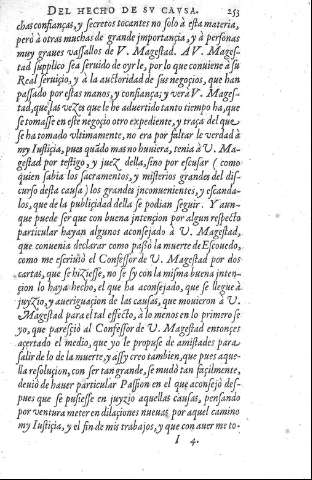 DEL HECHO DE SV CAVSA. 253
chas confianças, y secretos tocantes no solo à esta materia,
però à otras muchas de grande jmportançia, y à personas
muy graues vassallos de V. Magestad. A V. Mages-
tad supplico sea seruido de oyrle, por lo que conuiene à su
Real seruiçio, y à la auctoridad de sus negoçios, que han
passado por estas manos, y confiança; y verà V. Mages-
tad, que las vezes que le he aduertido tanto tiempo ha, que
se tomasse en este negoçio otro expediente, y traça del que
se ha tomado vltimamente, no era por faltar le verdad à
my Iustiçia, pues quãdo mas no huuiera, tenia à V. Ma-
gestad por testigo, y juez della, sino por escusar ( como
quien sabia los sacramentos, y misterios grandes del dis-
curso desta causa ) los grandes jnconuenientes, y escanda-
los, que de la publiçidad della se podian seguir. Y aun-
que puede ser que con buena jntençion por algun respecto
particular hayan algunos aconsejado à V. Magestad,
que conuenia declarar como passò la muerte de Escouedo,
como me escriuiò el Confessor de V. Magestad por dos
cartas, que se hiziesse, no se sy con la misma buena jnten-
çion lo haya hecho, el que ha aconsejado, que se llegue à
juyzio, y aueriguaçion de las causas, que mouieron à V.
Magestad para el tal effecto, à lo menos en lo primero se
yo, que paresçiò al Confessor de V. Magestad entonçes
açertado el medio, que yo le propuse de amistades para
salir de lo de la muerte, y assy creo tambien, que pues aque-
lla resoluçion, con ser tan grande, se mudò tan façilmente,
deuiò de hauer particular Passion en el que aconsejò des-
pues que se pusiesse en juyzio aquellas causas, pensando
por ventura meter en dilaçiones nueuas por aquel camino
my Iustiçia, y el fin de mis trabajos, y que con auer me to-
I 4.